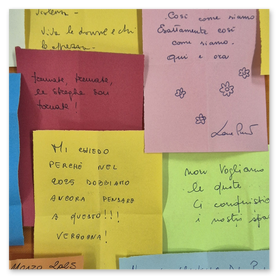 Viva le donne e chi
Così come siamo
Esattamente così
come siamo.
qui e ora
tornate, tornate,
le streghe son
tornate
MI CHIEDO
PERCHÉ NEL
2025 DOBBIAMO
ANCORA PENSARE
A QUESTO!!!
VERGOGNA!
non vogliamo
le quote
ci conquistia
i nostri spa
Marzo 2025